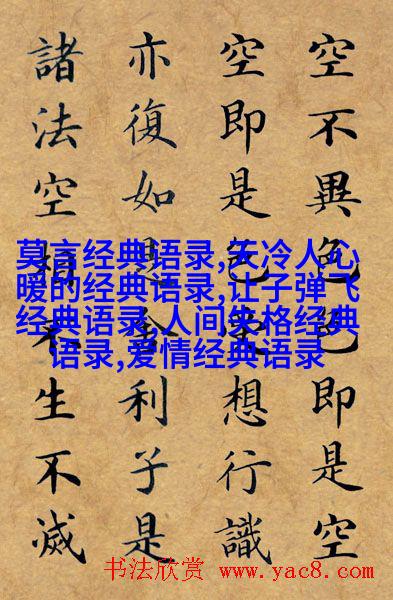 空不異色色即是空
空即是色受想行識
亦復如是舍利子是
諸法空相不生不滅
莫言经典语录,天冷人心
暖的经典语录,让子弹飞
经典语录,人间失格经典
语录,爱情经典语录
书法欣赏 www.yac8.com